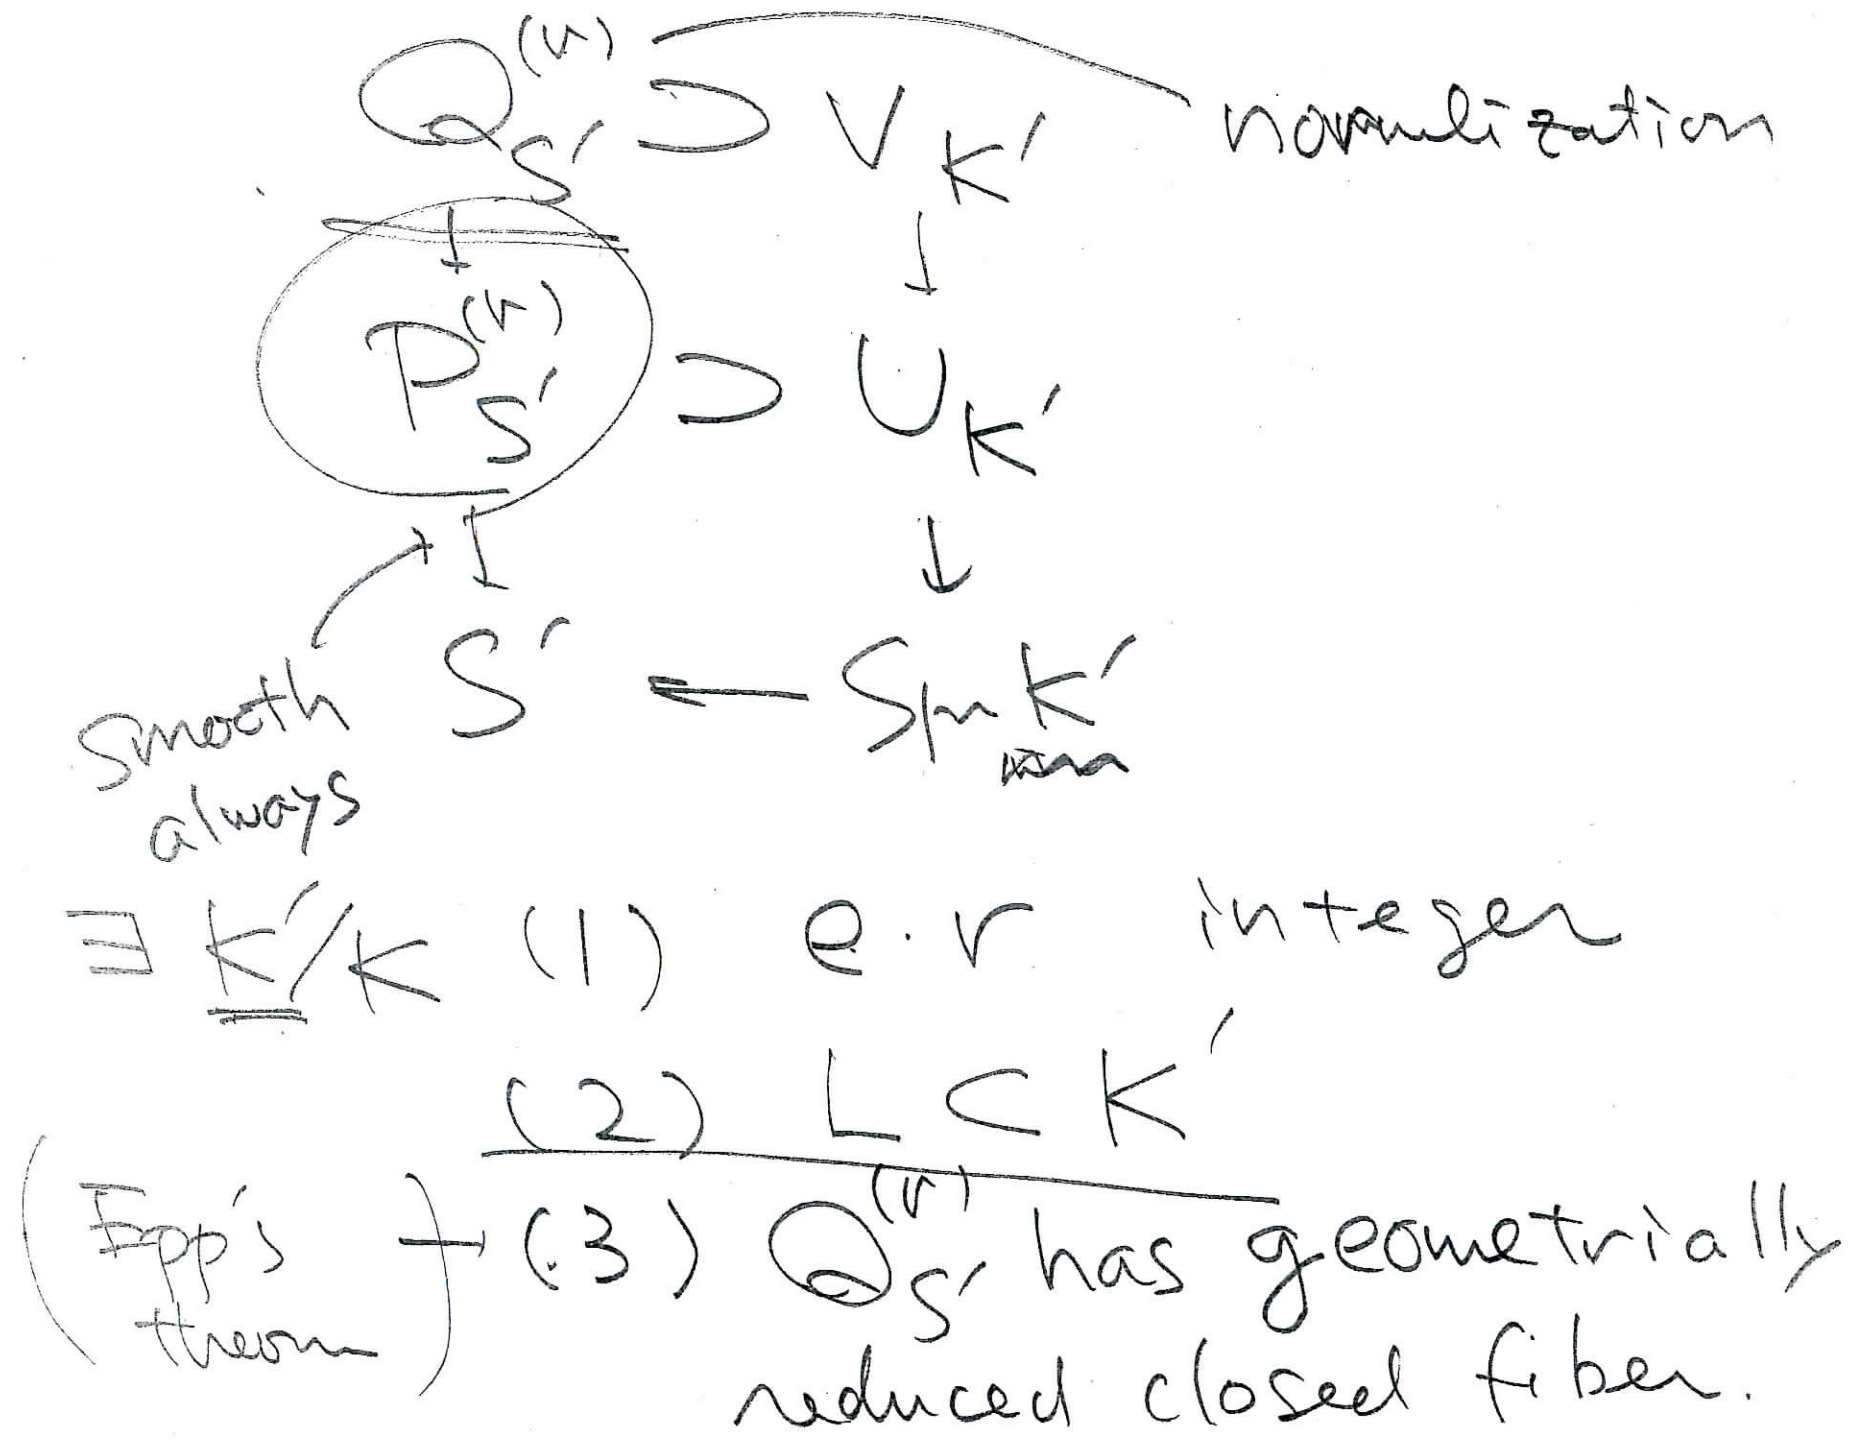 Q_{S'}^{(r)} ⊃ V_{K'} normalization
↓ ↓
P_{S'}^{(r)} ⊃ U_{K'}
↓ ↓
S' ← Spec K'
smooth
always
∃ K'/K (1) e·r integer
(2) L ⊂ K'
(Epp's theorem) → (3) Q_{S'}^{(r)} has geometrially
reduced closed fiber.